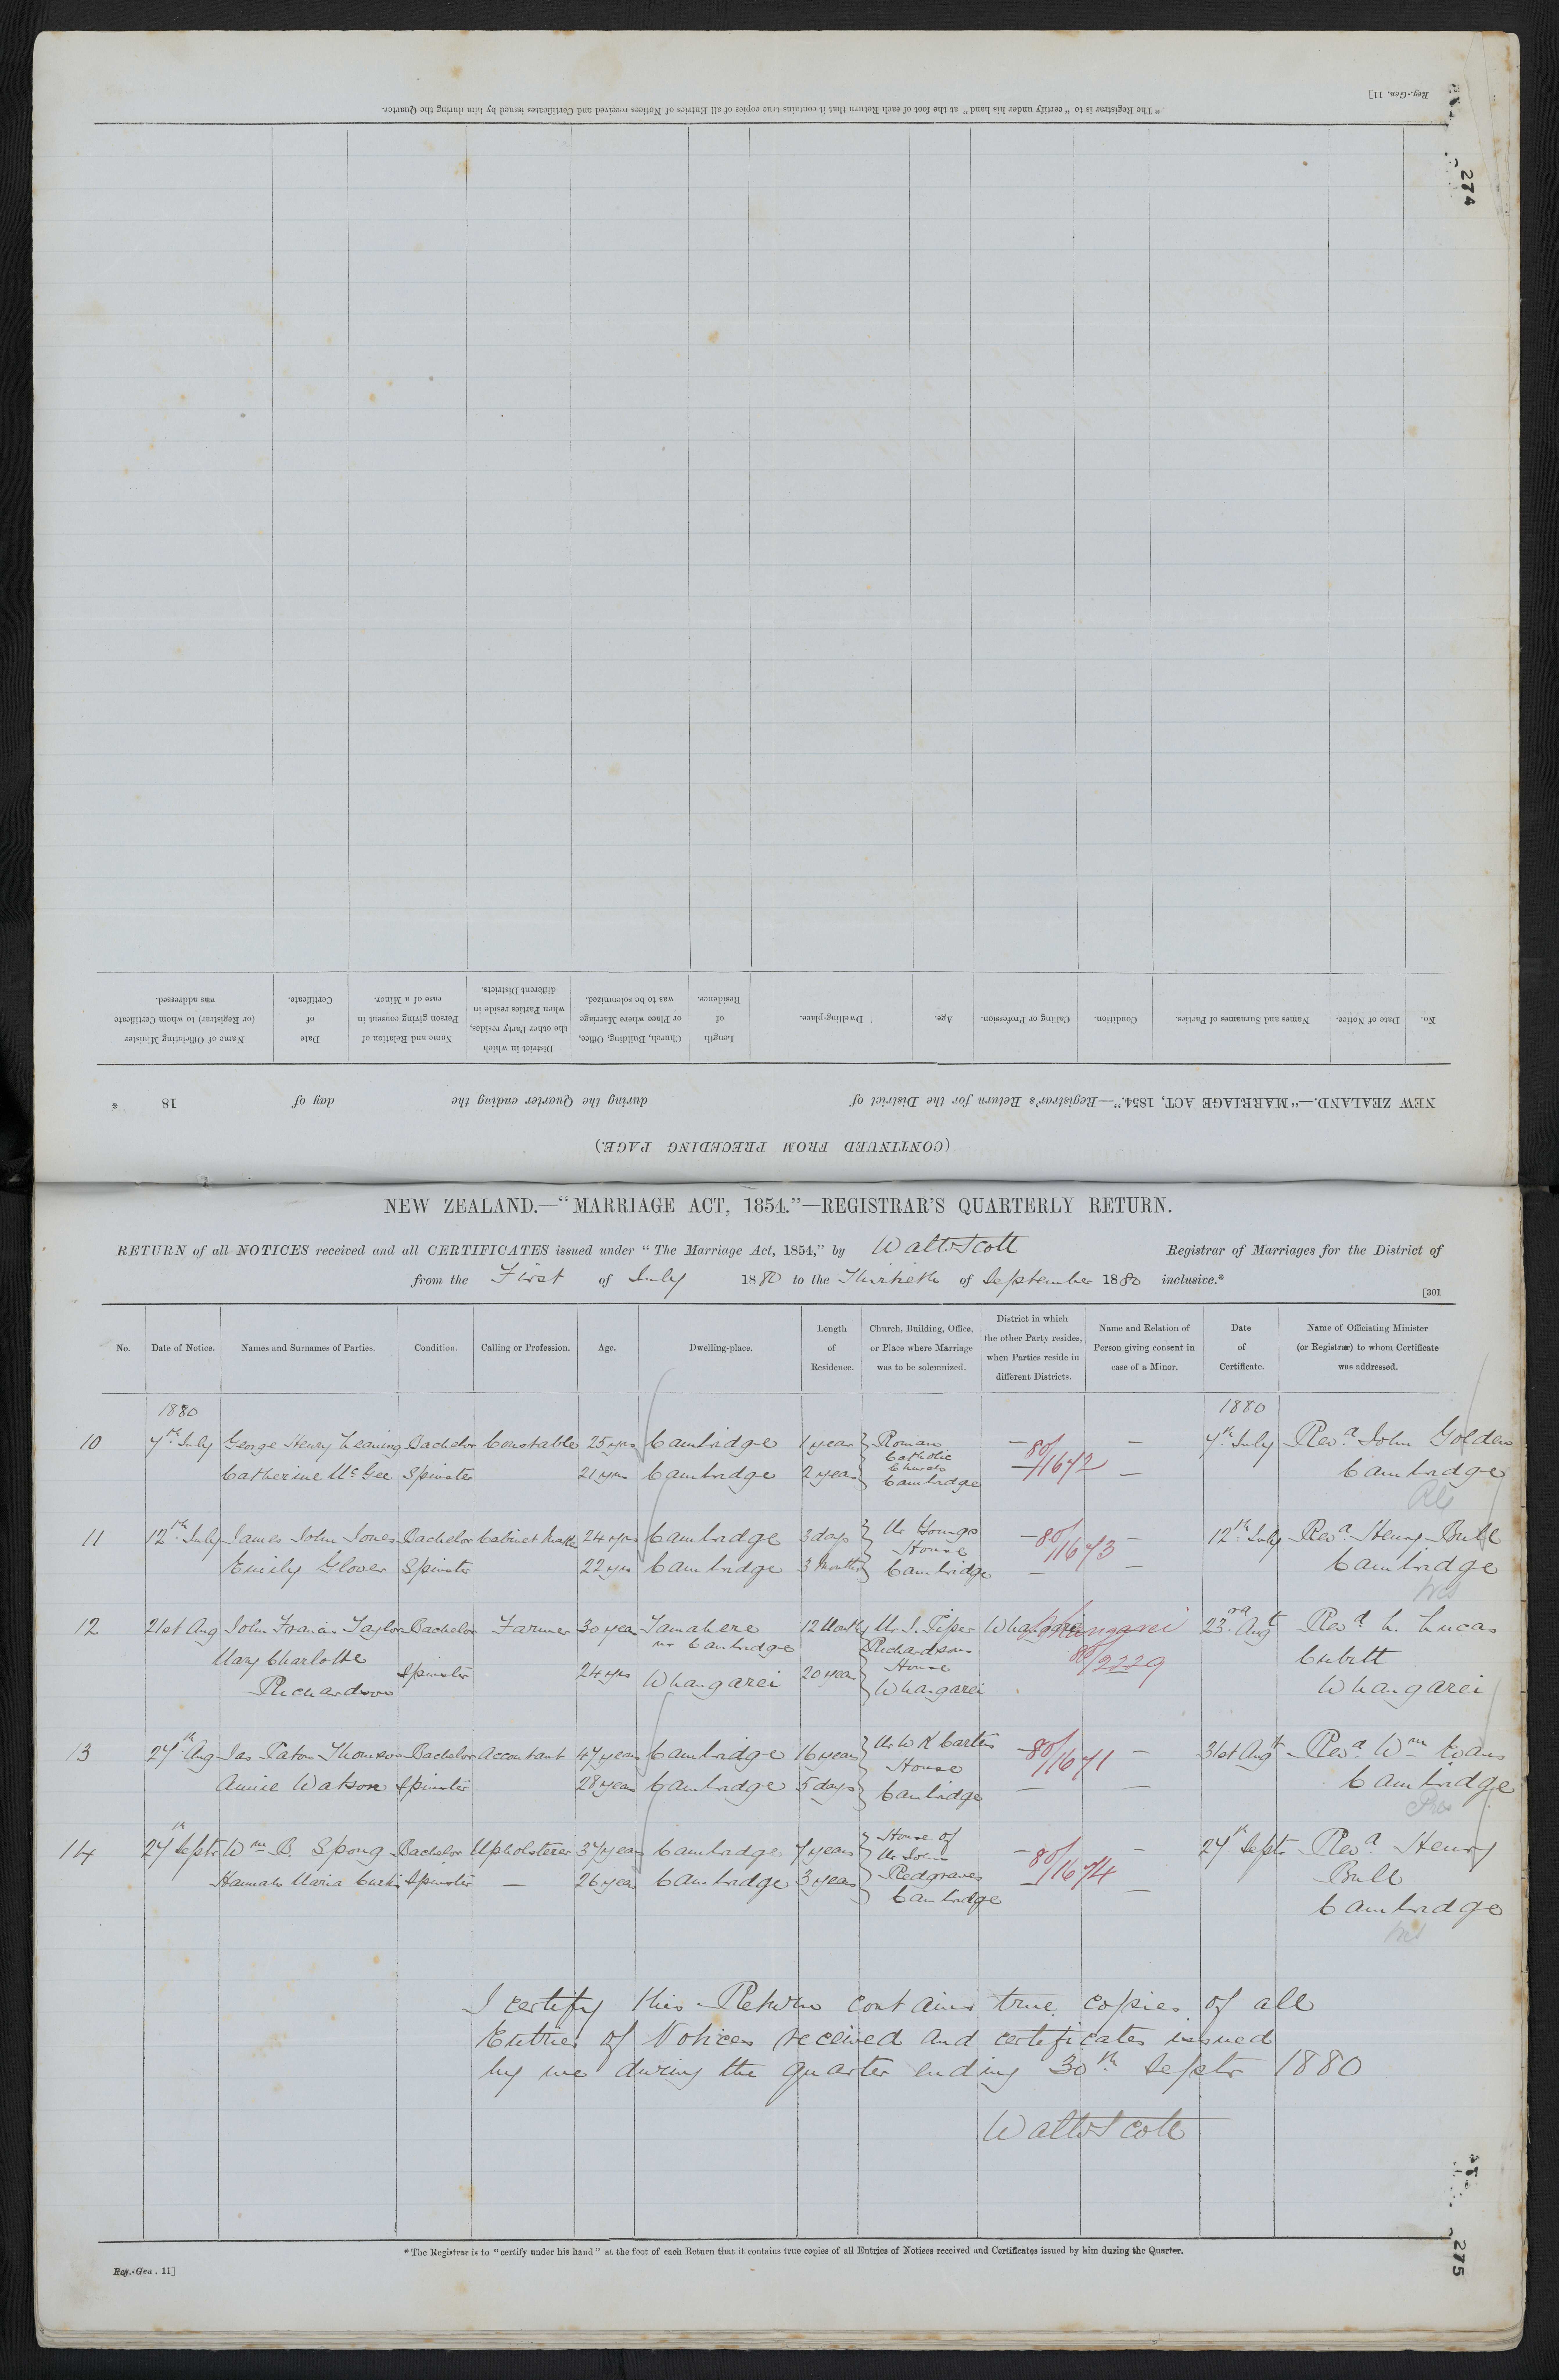 * The Registrar is to "certify under his hand" at the foot of each Return that it contains true copies of all Entries of Notices received and Certificates issued by him during the Quarter.
Reg.-Gen. 11]
274
(CONTINUED FROM PRECEDING PAGE.)
NEW ZEALAND.—"MARRIAGE ACT, 1854."—Registrar's Return for the District of during the Quarter ending the day of 18 .
No. Date of Notice. Names and Surnames of Parties. Condition. Calling or Profession. Age. Dwelling-place. Length of Residence. Church, Building, Office, or Place where Marriage was to be solemnized. District in which the other Party resides, when Parties reside in different Districts. Name and Relation of Person giving consent in case of a Minor. Date of Certificate. Name of Officiating Minister (or Registrar) to whom Certificate was addressed.
NEW ZEALAND.—"MARRIAGE ACT, 1854."—REGISTRAR'S QUARTERLY RETURN.
RETURN of all NOTICES received and all CERTIFICATES issued under "The Marriage Act, 1854," by Walter Scott Registrar of Marriages for the District of
from the First of July 1880 to the Thirtieth of September 1880 inclusive.*
[301
No. Date of Notice. Names and Surnames of Parties. Condition. Calling or Profession. Age. Dwelling-place. Length of Residence. Church, Building, Office, or Place where Marriage was to be solemnized. District in which the other Party resides, when Parties reside in different Districts. Name and Relation of Person giving consent in case of a Minor. Date of Certificate. Name of Officiating Minister (or Registrar) to whom Certificate was addressed.
1880 1880
10 7th July George Henry Leaning Bachelor Constable 25 yrs Cambridge 1 year Roman Catholic Church Cambridge — 80/1672 — 7th July Revd John Golden
Catherine McGee Spinster 21 yrs Cambridge 2 years — — Cambridge
11 12th July James John Jones Bachelor Cabinet Maker 24 yrs Cambridge 3 days Mr Youngs House Cambridge — 80/1673 — 12th July Revd Henry Bull
Emily Glover Spinster 22 yrs Cambridge 3 Months — — Cambridge
12 21st Aug John Francis Taylor Bachelor Farmer 30 year Tamahere nr Cambridge 12 Months Mr I. Piper Richardsons House Whangarei Whangarei Whangarei 80/2229 23rd Augt Revd L. Lucas
Mary Charlotte Richardson Spinster 24 yrs Whangarei 20 year Cubitt Whangarei
13 27th Aug Jas Paton Thomson Bachelor Accountant 47 years Cambridge 16 years Mr W K Carters House Cambridge — 80/1671 — 31st Augt Revd Wm Evans
Annie Watson Spinster 28 years Cambridge 5 days — — Cambridge
Pres
14 27th Septr Wm B. Spong Bachelor Upholsterer 37 years Cambridge 7 years House of Mr John Redgraves Cambridge — 80/1674 — 27th Septr Revd Henry Bull
Hannah Maria Curtis Spinster — 26 year Cambridge 3 years — — Cambridge
I certify this Return contains true copies of all
Entries of Notices received and certificates issued
by me during the quarter ending 30th Septr 1880
Walter Scott
* The Registrar is to "certify under his hand" at the foot of each Return that it contains true copies of all Entries of Notices received and Certificates issued by him during the Quarter.
Reg.-Gen. 11]
275